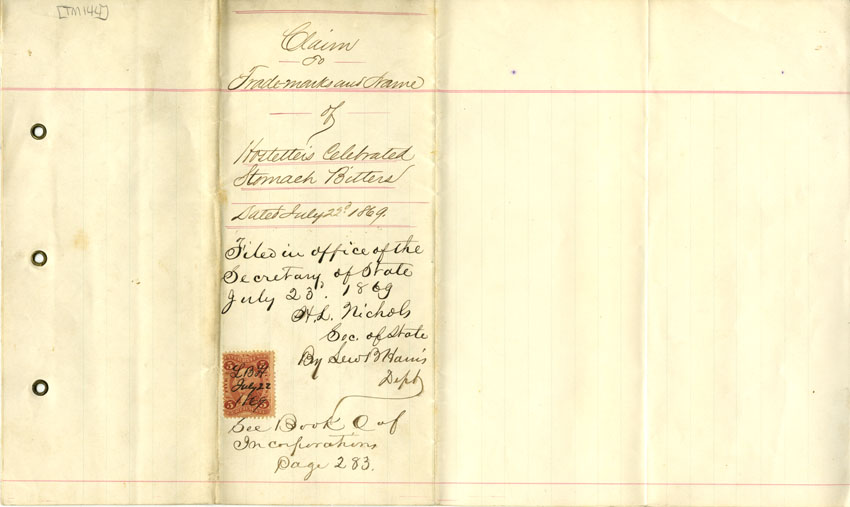 [TM144]
Claim
to
Trade marks and Name
of
Hostetter's Celebrated
Stomach Bitters
Dated July 22d 1869.
Filed in office of the
Secretary of State
July 23d. 1869
H.L. Nichols
Sec. of State
By Lew B Harris
Dept
5 5
L B H
July 22
1869
5 5
See Book C of
Incorporations
Page 283.